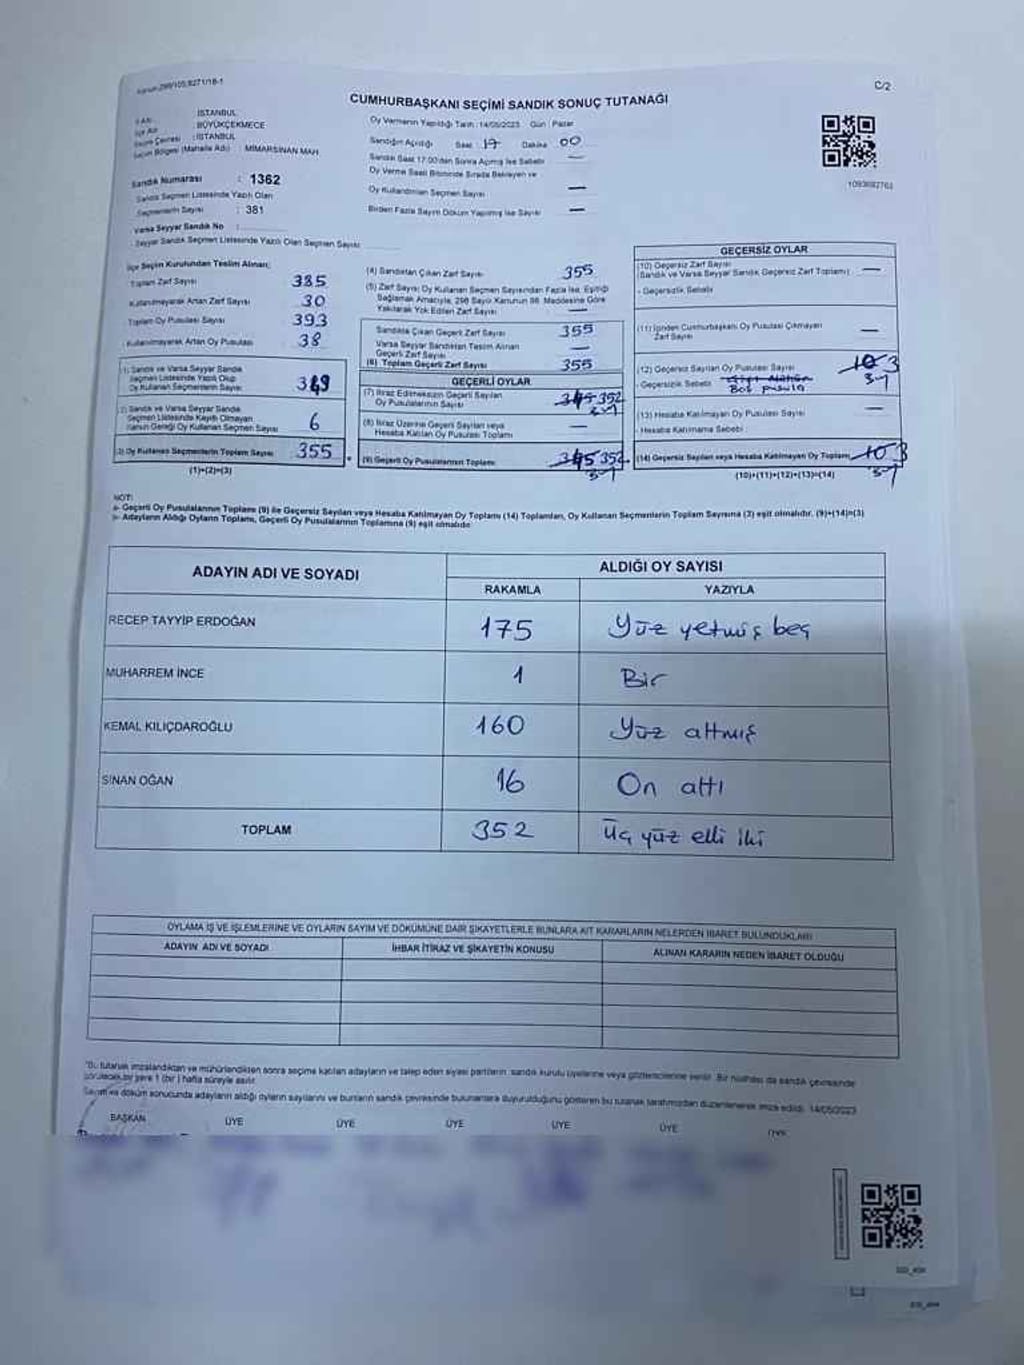 C/2
CUMHURBAŞKANI SEÇİMİ SANDIK SONUÇ TUTANAĞI
İSTANBUL
BÜYÜKÇEKMECE
Seçim Çevresi : İSTANBUL
Seçim Bölgesi (Mahalle Adı) : MİMARSİNAN MAH
Sandık Numarası : 1362
Sandık Seçmen Listesinde Yazılı Olan
Seçmenlerin Sayısı : 381
Varsa Seyyar Sandık No :
Seyyar Sandık Seçmen Listesinde Yazılı Olan Seçmen Sayısı
Oy Vermenin Yapıldığı Tarih : 14/05/2023 Gün : Pazar
Sandığın Açıldığı Saat 17 Dakika 00
Sandık Saat 17:00'den Sonra Açılmış İse Sebebi —
Oy Verme Saati Bitiminde Sırada Bekleyen ve
Oy Kullandırılan Seçmen Sayısı —
Birden Fazla Sayım Döküm Yapılmış İse Sayısı —
1093692763
İlçe Seçim Kurulundan Teslim Alınan:
Toplam Zarf Sayısı 385
Kullanılmayarak Artan Zarf Sayısı 30
Toplam Oy Pusulası Sayısı 393
Kullanılmayarak Artan Oy Pusulası 38
(1) Sandık ve Varsa Seyyar Sandık
Seçmen Listesinde Yazılı Olup
Oy Kullanan Seçmenlerin Sayısı 349
(2) Sandık ve Varsa Seyyar Sandık
Seçmen Listesinde Kayıtlı Olmayan
Kanun Gereği Oy Kullanan Seçmen Sayısı 6
(3) Oy Kullanan Seçmenlerin Toplam Sayısı 355
(1)+(2)=(3)
(4) Sandıktan Çıkan Zarf Sayısı 355
(5) Zarf Sayısı Oy Kullanan Seçmen Sayısından Fazla İse, Eşitliği
Sağlamak Amacıyla, 298 Sayılı Kanunun 98. Maddesine Göre
Yakılarak Yok Edilen Zarf Sayısı —
Sandıkta Çıkan Geçerli Zarf Sayısı 355
Varsa Seyyar Sandıktan Teslim Alınan
Geçerli Zarf Sayısı —
(6) Toplam Geçerli Zarf Sayısı 355
GEÇERLİ OYLAR
(7) İtiraz Edilmeksizin Geçerli Sayılan
Oy Pusulalarının Sayısı 345 352
(8) İtiraz Üzerine Geçerli Sayılan veya
Hesaba Katılan Oy Pusulası Toplamı —
(9) Geçerli Oy Pusulalarının Toplamı 345 352
GEÇERSİZ OYLAR
(10) Geçersiz Zarf Sayısı
(Sandık ve Varsa Seyyar Sandık Geçersiz Zarf Toplamı) —
- Geçersizlik Sebebi
(11) İçinden Cumhurbaşkanı Oy Pusulası Çıkmayan
Zarf Sayısı —
(12) Geçersiz Sayılan Oy Pusulası Sayısı 10 3
- Geçersizlik Sebebi
Boş pusula
(13) Hesaba Katılmayan Oy Pusulası Sayısı —
- Hesaba Katılmama Sebebi
(14) Geçersiz Sayılan veya Hesaba Katılmayan Oy Toplamı 10 3
(10)+(11)+(12)+(13)=(14)
NOT:
a- Geçerli Oy Pusulalarının Toplamı (9) ile Geçersiz Sayılan veya Hesaba Katılmayan Oy Toplamı (14) Toplamları, Oy Kullanan Seçmenlerin Toplam Sayısına (3) eşit olmalıdır. (9)+(14)=(3)
b- Adayların Aldığı Oyların Toplamı, Geçerli Oy Pusulalarının Toplamına (9) eşit olmalıdır.
ADAYIN ADI VE SOYADI ALDIĞI OY SAYISI
RAKAMLA YAZIYLA
RECEP TAYYİP ERDOĞAN 175 Yüz yetmiş beş
MUHARREM İNCE 1 Bir
KEMAL KILIÇDAROĞLU 160 Yüz altmış
SİNAN OĞAN 16 On altı
TOPLAM 352 Üç yüz elli iki
OYLAMA İŞ VE İŞLEMLERİNE VE OYLARIN SAYIM VE DÖKÜMÜNE DAİR ŞİKAYETLERLE BUNLARA AİT KARARLARIN NELERDEN İBARET BULUNDUKLARI
ADAYIN ADI VE SOYADI İHBAR İTİRAZ VE ŞİKAYETİN KONUSU ALINAN KARARIN NEDEN İBARET OLDUĞU
*Bu tutanak imzalandıktan ve mühürlendikten sonra seçime katılan adayların ve talep eden siyasi partilerin sandık kurulu üyelerine veya gözlemcilerine verilir. Bir nüshası da sandık çevresinde
görülecek bir yere 1 (bir) hafta süreyle asılır.
Sayım ve döküm sonucunda adayların aldığı oyların sayılarını ve bunların sandık çevresinde bulunanlara duyurulduğunu gösteren bu tutanak tarafımızdan düzenlenerek imza edildi. 14/05/2023
BAŞKAN ÜYE ÜYE ÜYE ÜYE ÜYE ÜYE